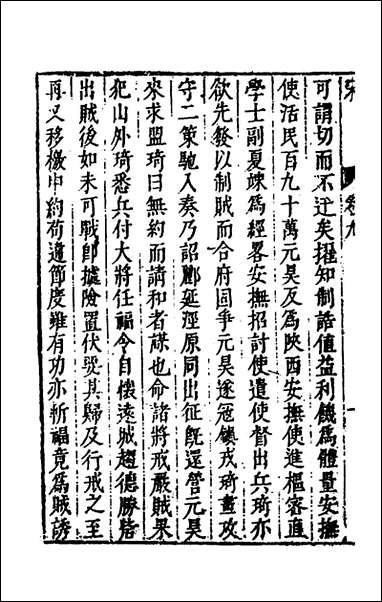 可謂切而不迂矣擢知制誥值益利饑爲體量安撫
使活民百九十萬元昊反爲陝西安撫使進樞密直
學士副夏竦爲經略安撫招討使遣使督出兵琦亦
欲先發以制賊而合府固爭元昊遂寇鎮戎琦畫攻
守二策馳入奏乃詔鄜延涇原同出征旣還營元昊
來求盟琦曰無約而請和者謀也命諸將戒嚴賊果
犯山外琦悉兵付大將任福令自懷遠城趨德勝砦
出賊後如未可戰卽據險置伏㢮其歸及行戒之至
再又移檄申約苟違節度雖有功亦斬福竟爲賊誘
宋 卷九 一